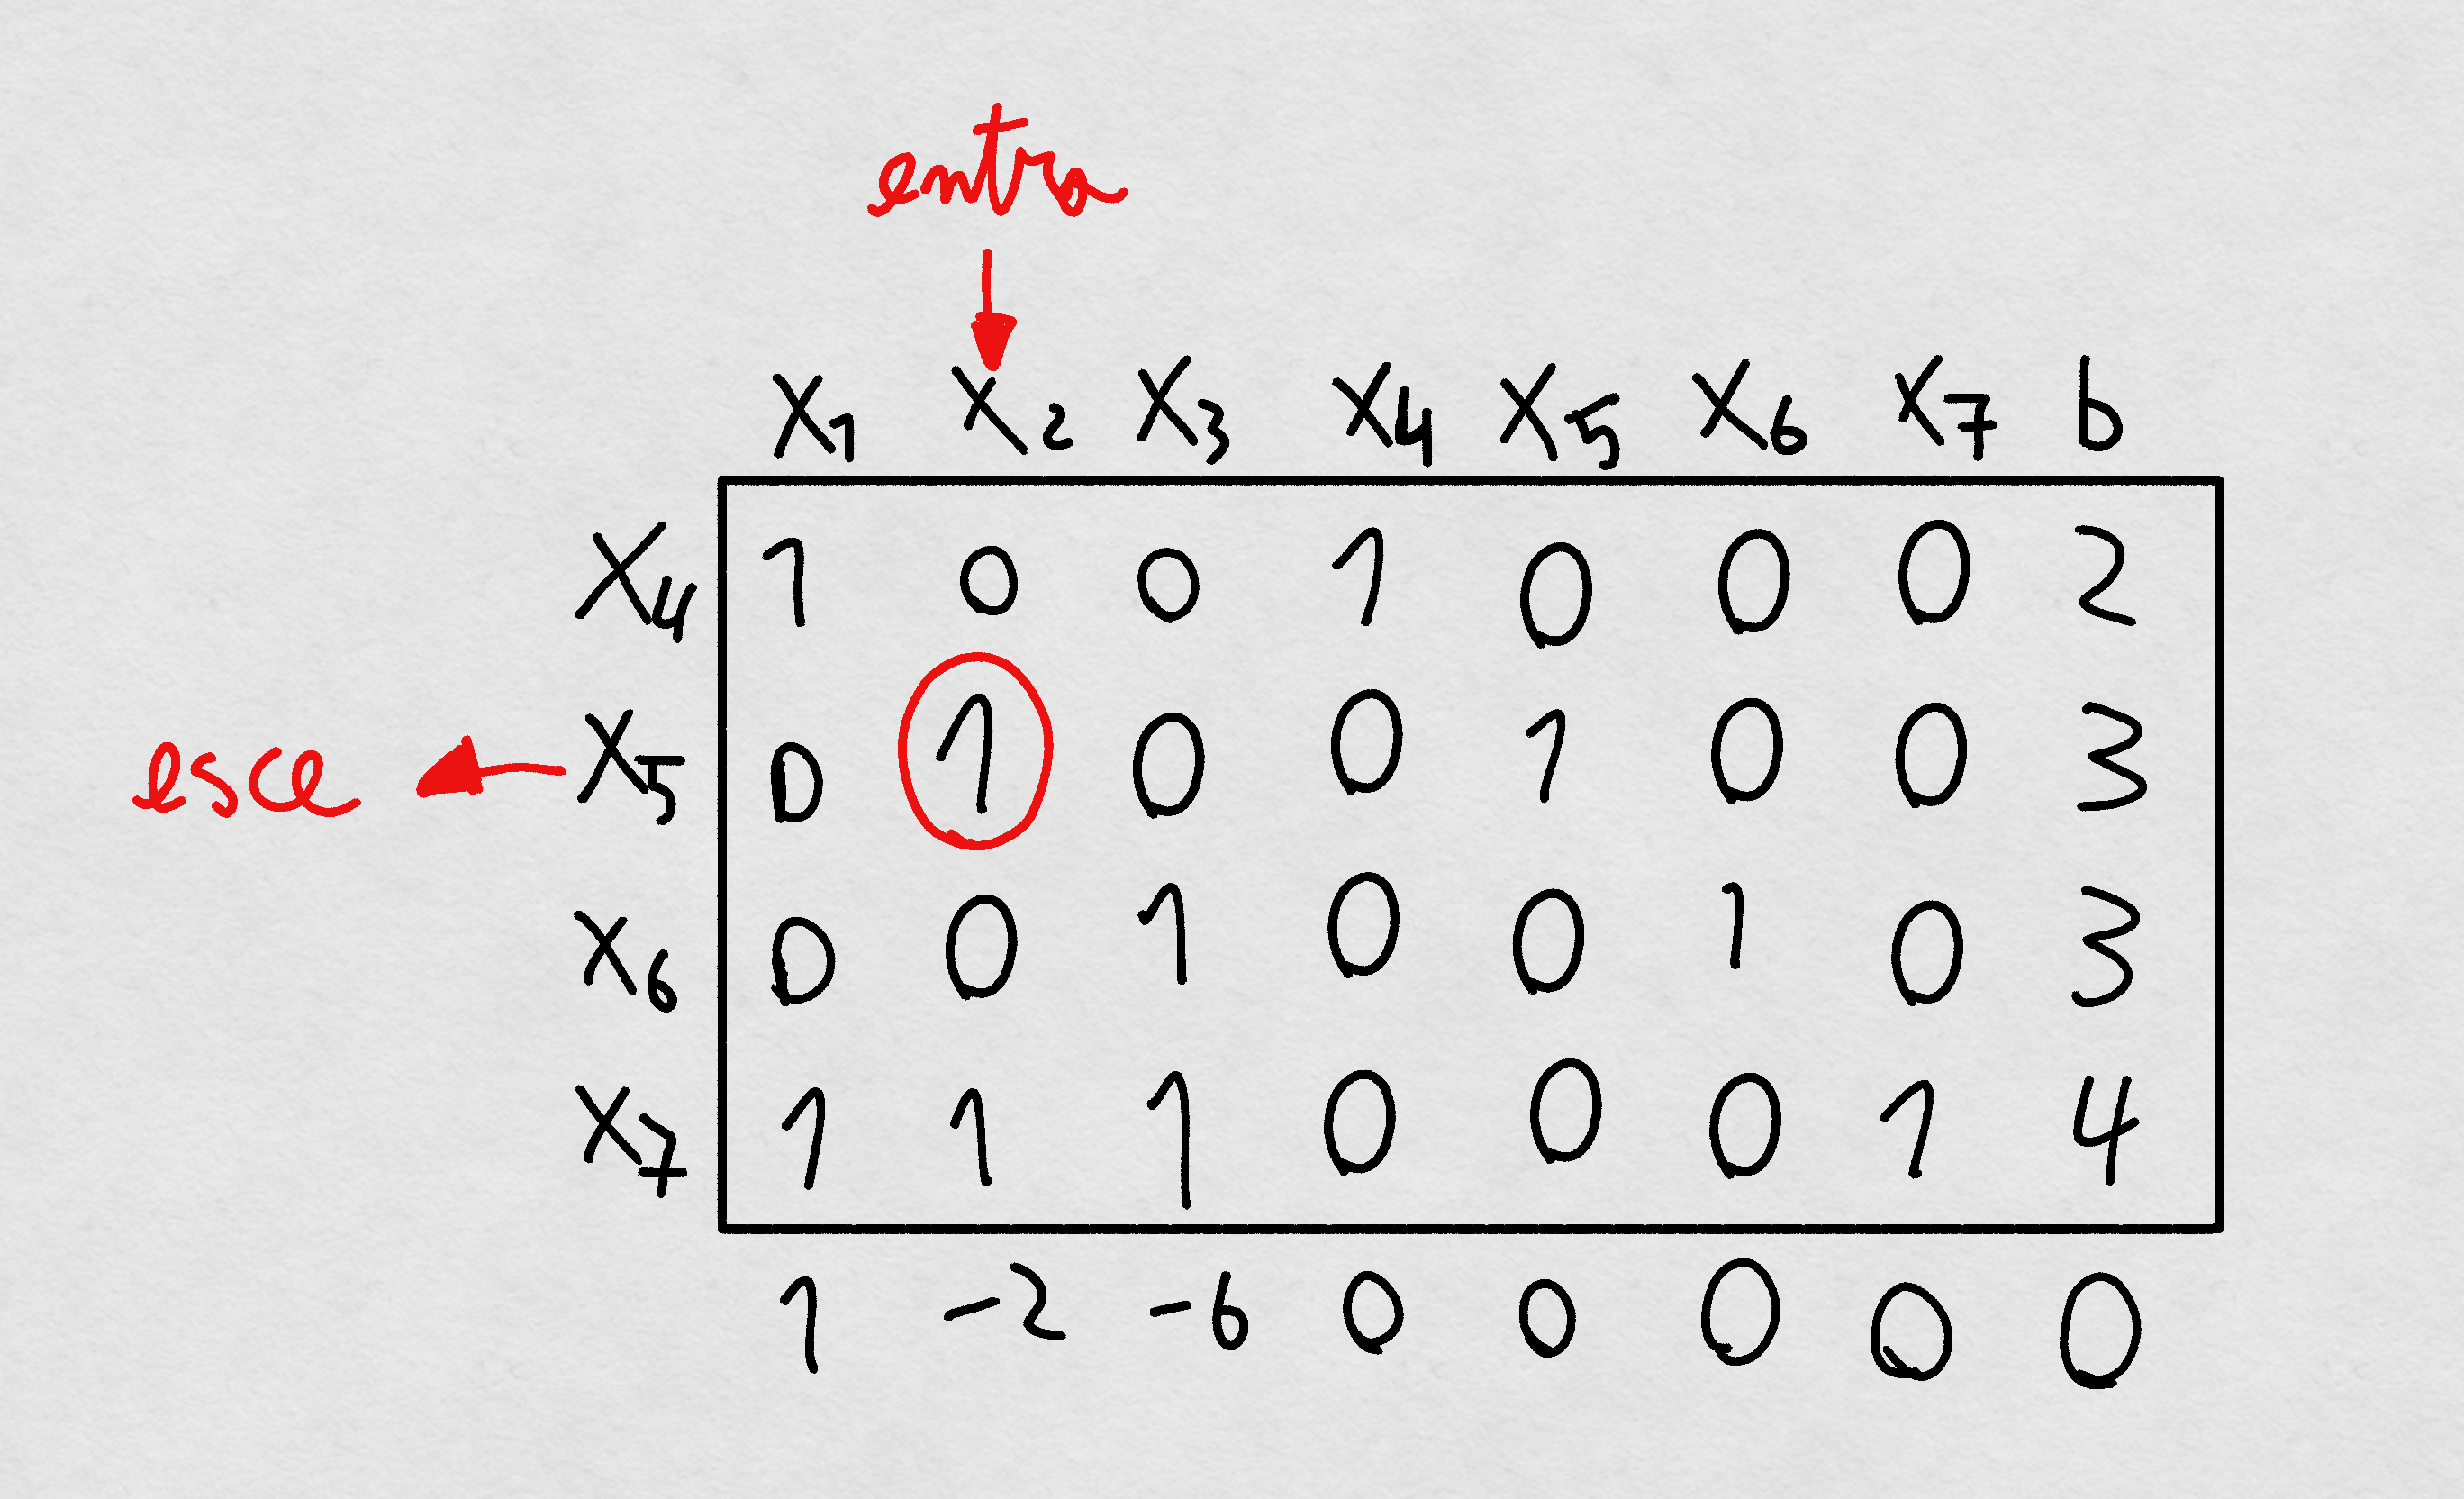 entra
X1 X2 X3 X4 X5 X6 X7 b
X4 1 0 0 1 0 0 0 2
esce X5 0 1 0 0 1 0 0 3
X6 0 0 1 0 0 1 0 3
X7 1 1 1 0 0 0 1 4
1 -2 -6 0 0 0 0 0